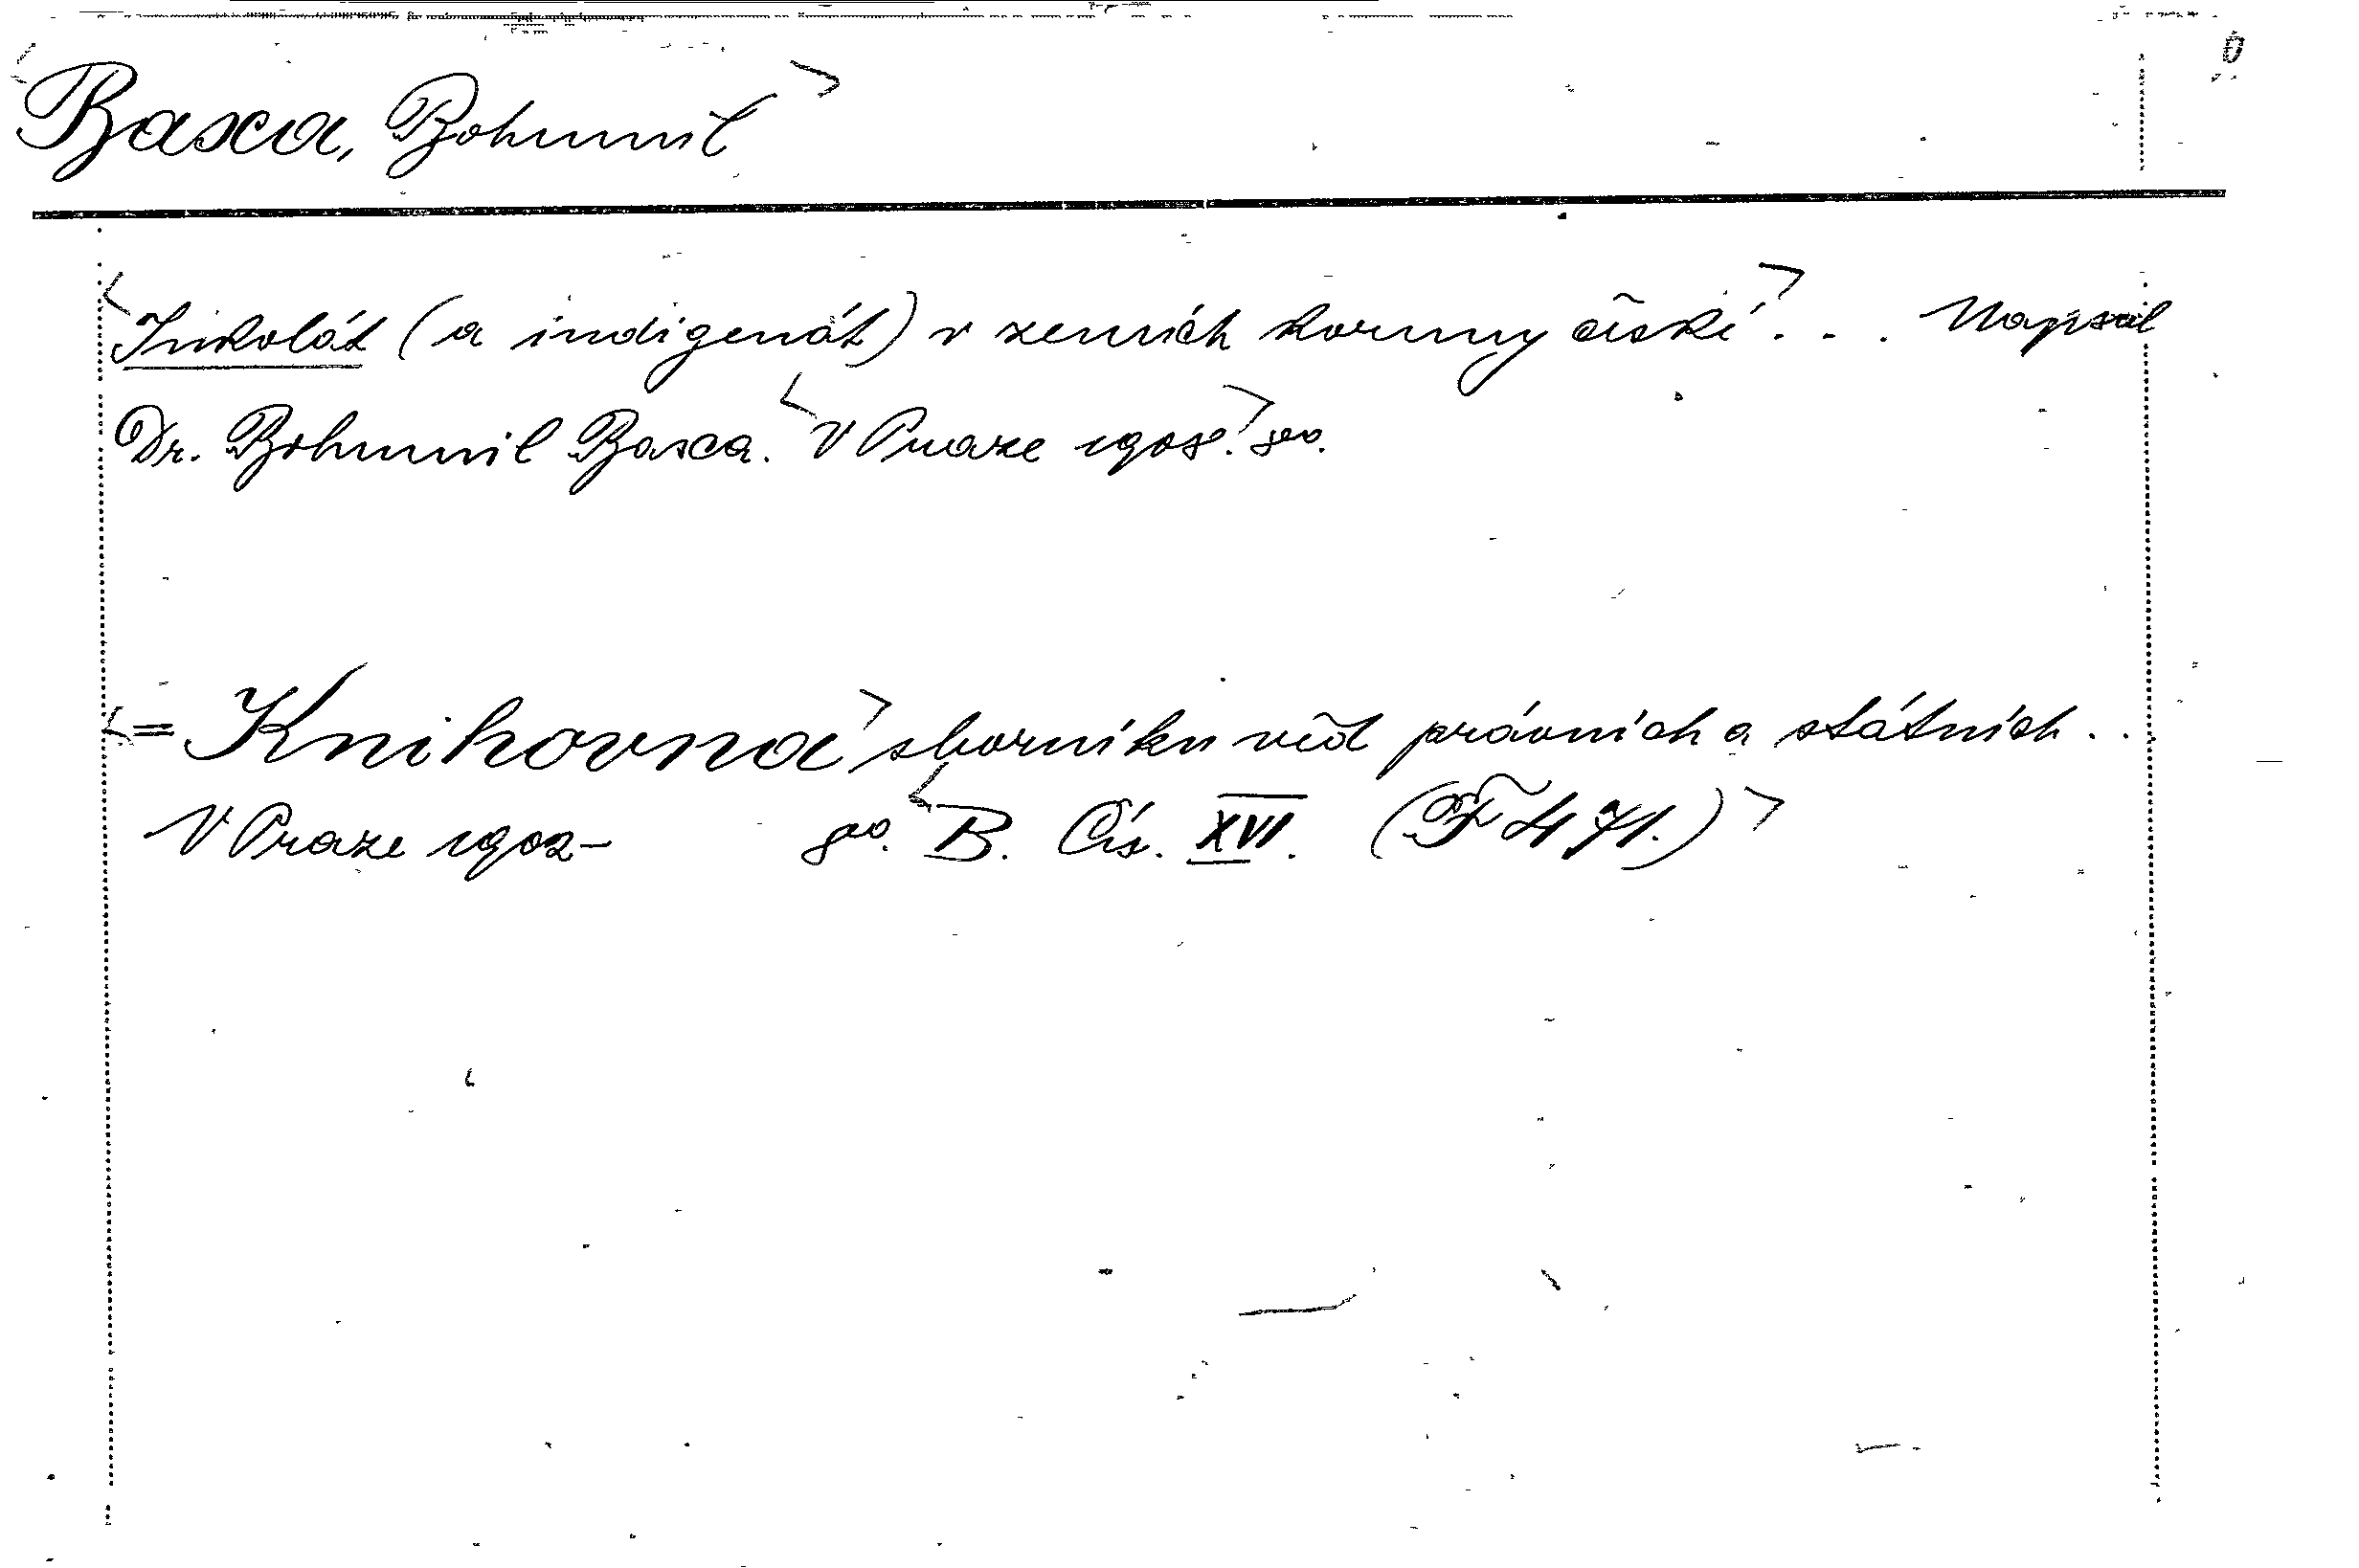 Baxa, Bohumil
Inkolát (a indigenát) v zemích koruny české... Napsal
Dr. Bohumil Baxa. V Praze 1908. 8vo.
= Knihovna sborníku věd právních a státních..
V Praze 1902- 8vo. B. Čís. XVI. (F 471.)